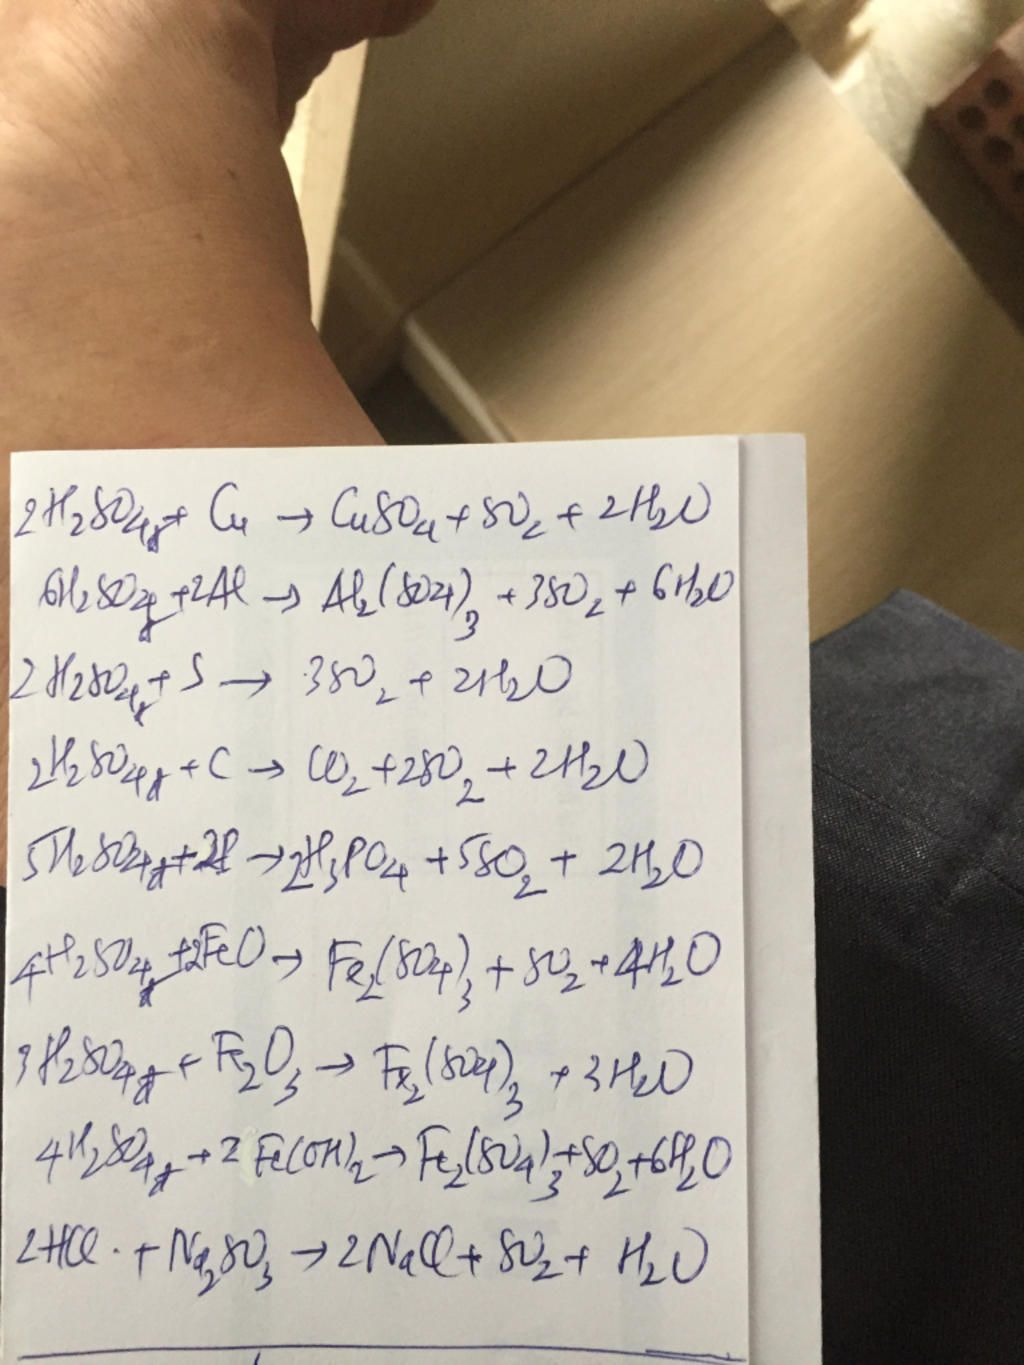 2H₂SO₄đ + Cu → CuSO₄ + SO₂ + 2H₂O
6H₂SO₄đ + 2Al → Al₂(SO₄)₃ + 3SO₂ + 6H₂O
2H₂SO₄đ + S → 3SO₂ + 2H₂O
2H₂SO₄đ + C → CO₂ + 2SO₂ + 2H₂O
5H₂SO₄đ + 2P → 2H₃PO₄ + 5SO₂ + 2H₂O
4H₂SO₄đ + 2FeO → Fe₂(SO₄)₃ + SO₂ + 4H₂O
3H₂SO₄đ + Fe₂O₃ → Fe₂(SO₄)₃ + 3H₂O
4H₂SO₄đ + 2Fe(OH)₂ → Fe₂(SO₄)₃ + SO₂ + 6H₂O
2HCl + Na₂SO₃ → 2NaCl + SO₂ + H₂O